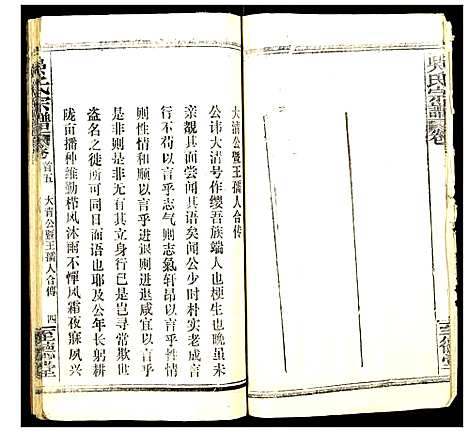 吳氏宗譜
卷
至德堂
大清公暨王孺人合傳
公諱大清号作缨吾族端人也梗生也晚虽未
亲觌其面尝闻其语矣闻公少时朴实老成言
行不苟以言乎志气则志氣轩昂以言乎性情
则性情和顺以言乎进退则进退咸宜以言乎
是非则是非无有其立身行己是岂寻常欺世
盗名之徒所可同日而语也耶及公年长躬耕
陇亩播种维勤栉风沐雨不憚风霜夜寐夙兴
吳氏宗譜
卷首五
大清公暨王孺人合傳
四
至德堂